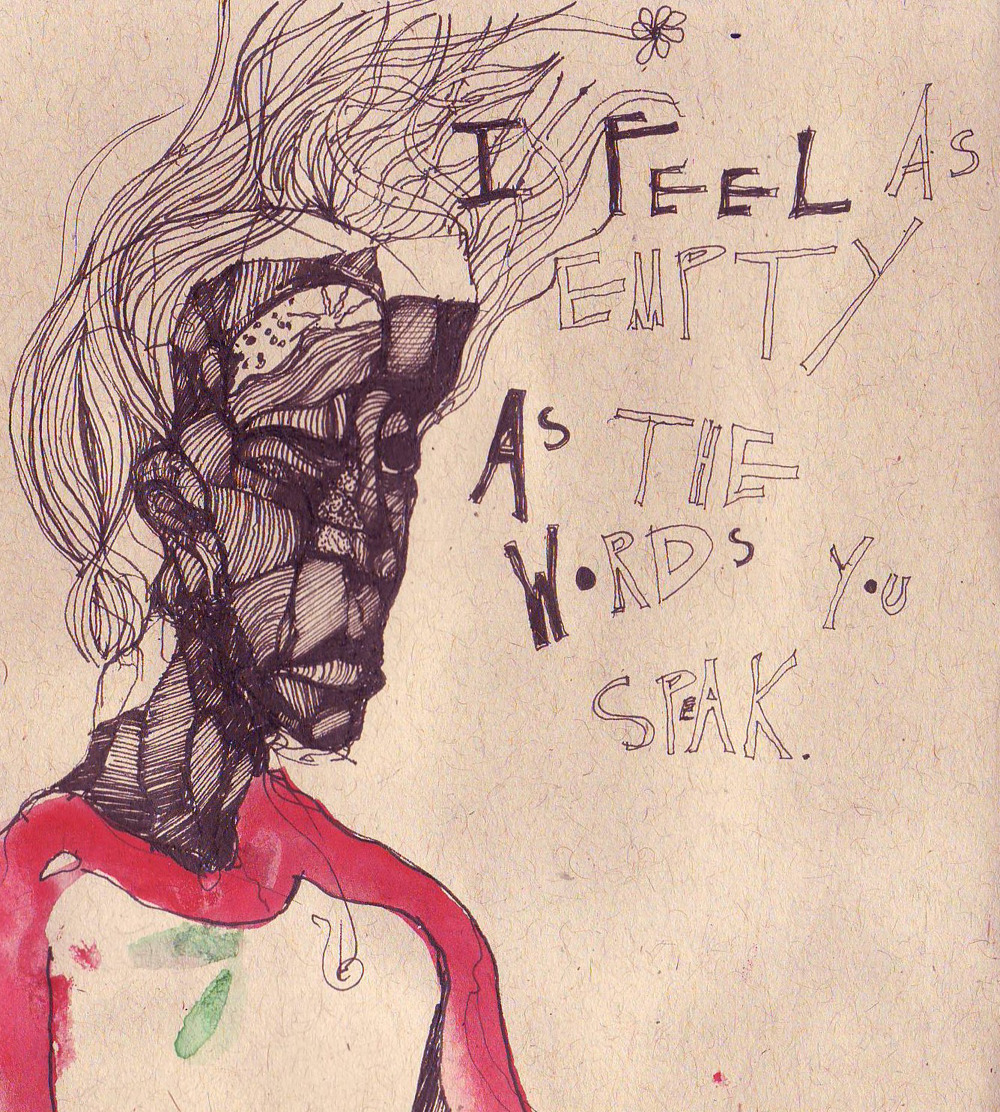 I FEEL AS
EMPTY
AS THE
WORDS YOU
SPEAK.